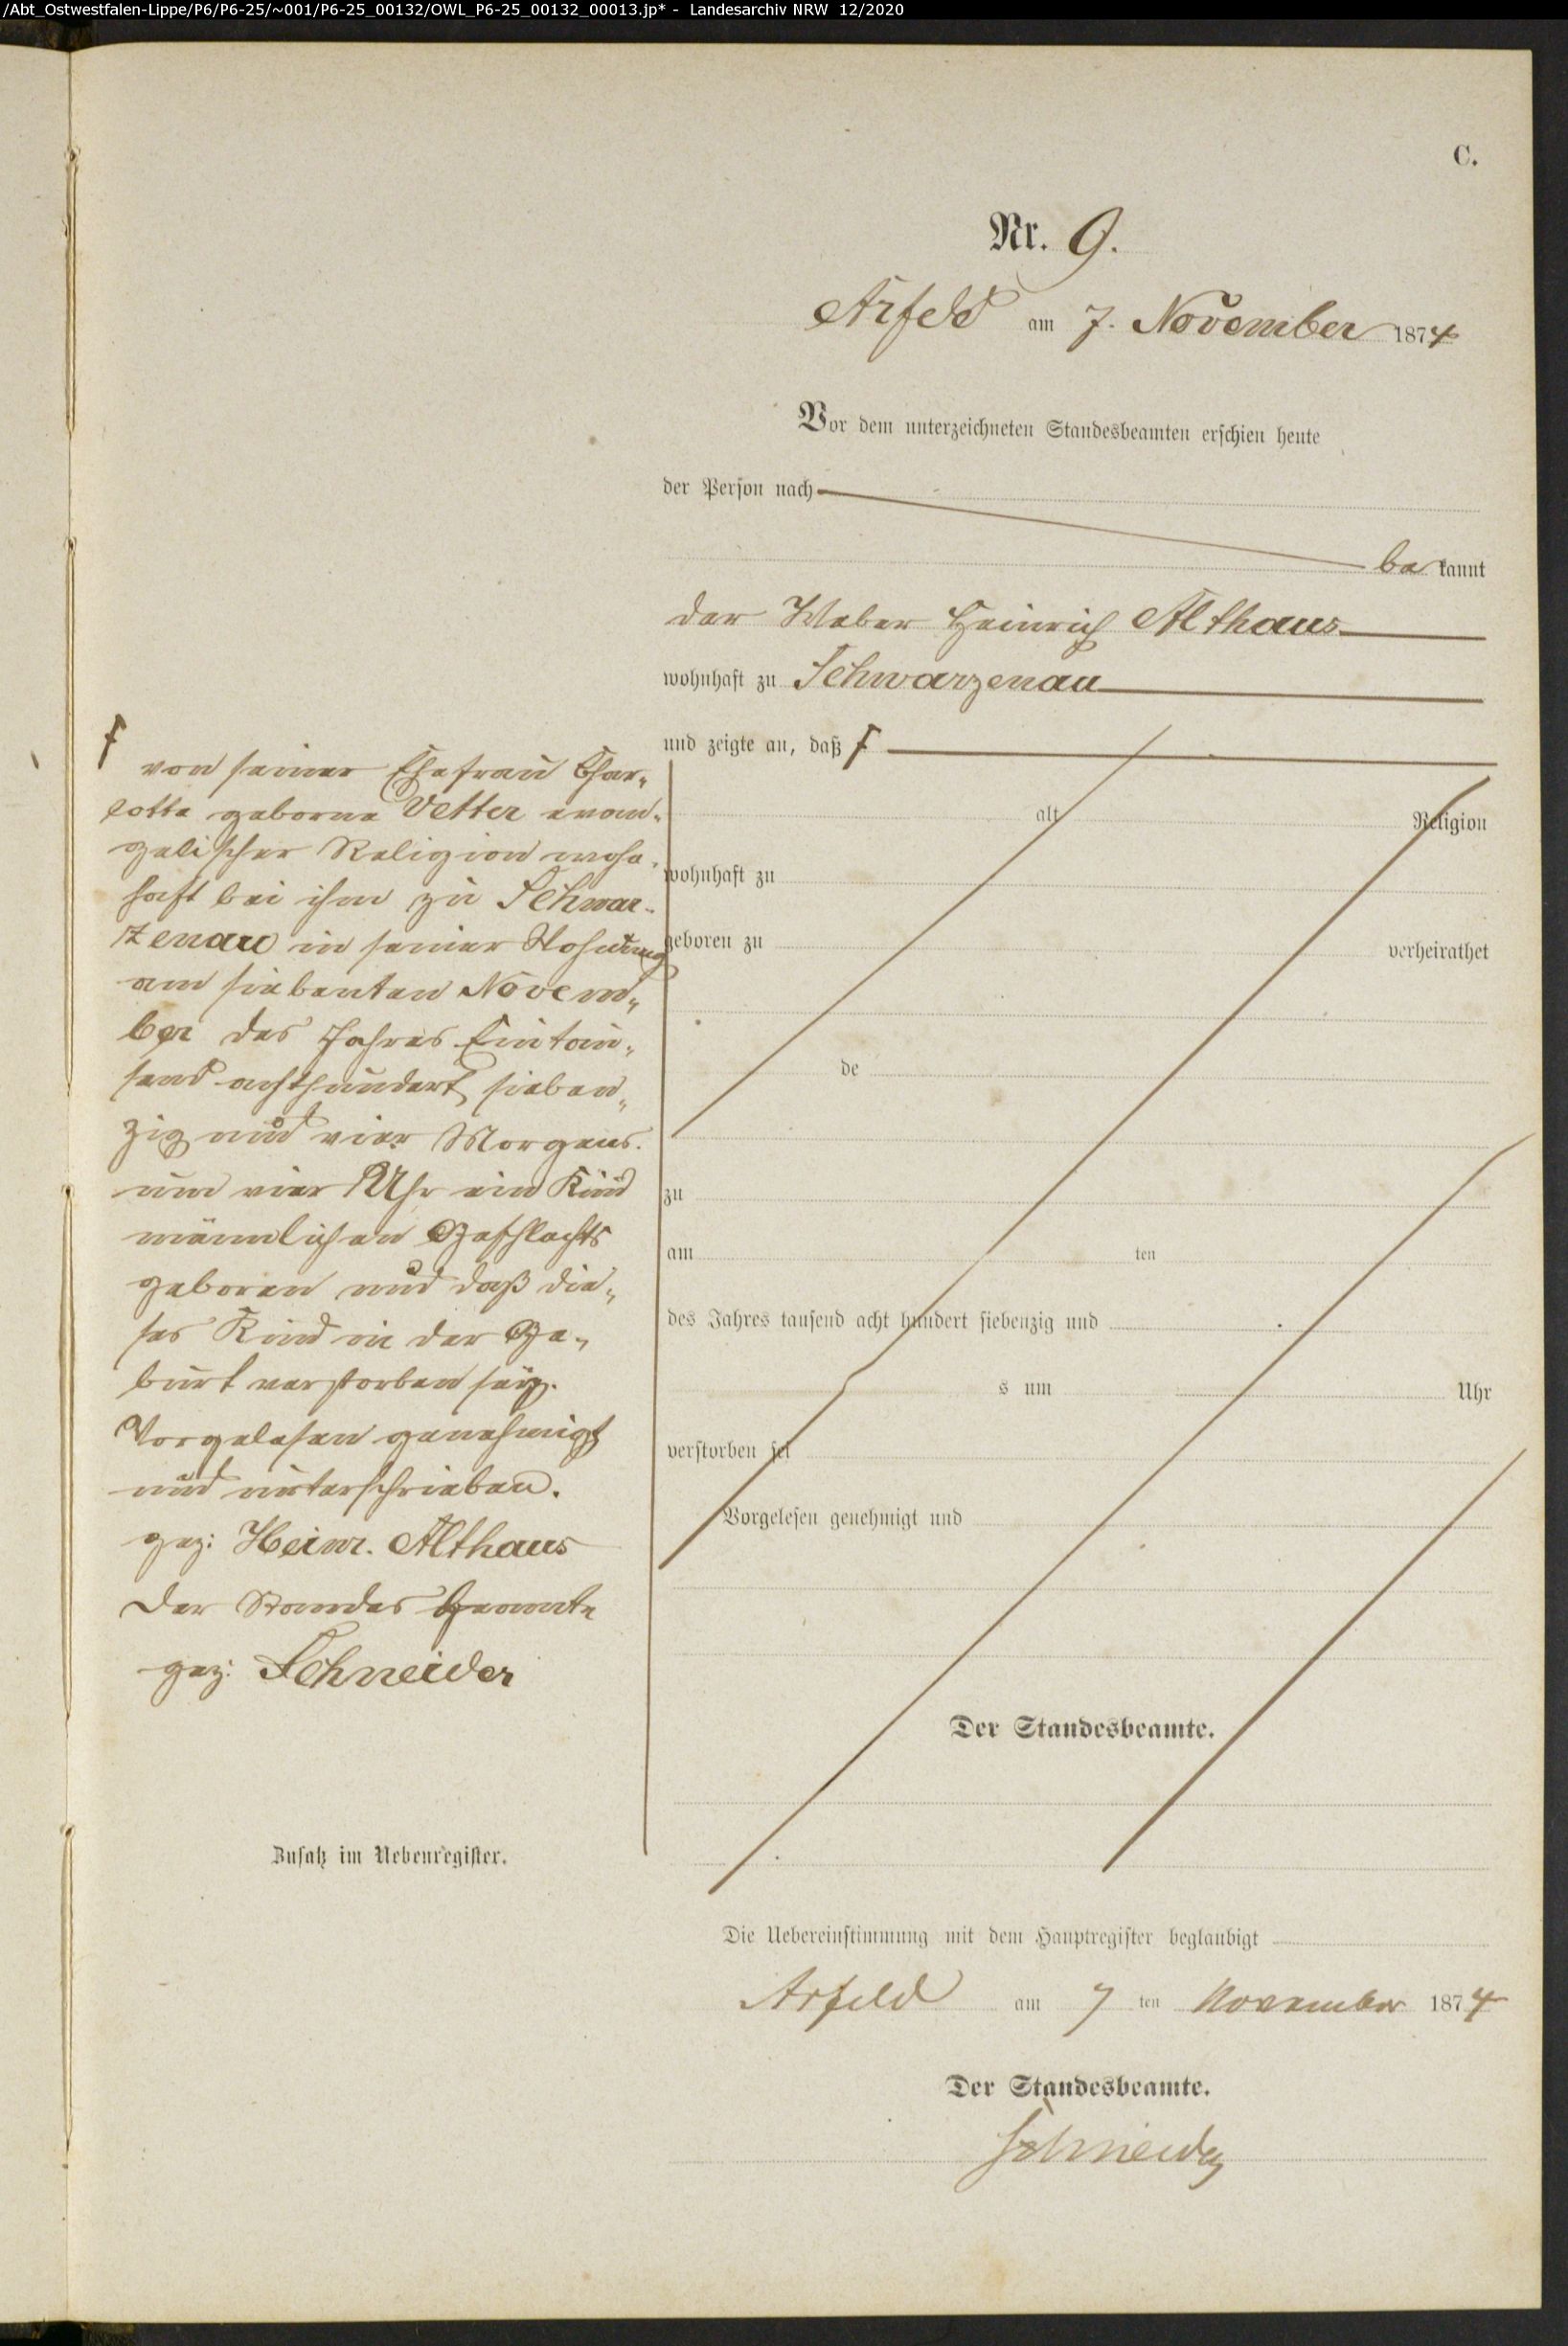 /Abt_Ostwestfalen-Lippe/P6/P6-25/~001/P6-25_00132/OWL_P6-25_00132_00013.jp* - Landesarchiv NRW 12/2020
C.
Nr. 9.
Arfeld am 7. November 1874
Vor dem unterzeichneten Standesbeamten erschien heute
der Person nach
be kannt
der Weber Heinrich Althaus
wohnhaft zu Schwarzenau
und zeigte an, daß f
alt Religion
wohnhaft zu
geboren zu verheirathet
de
zu
am ten
des Jahres tausend acht hundert siebenzig und
s um Uhr
verstorben sei
Vorgelesen genehmigt und
Der Standesbeamte.
f
von seiner Ehefrau Char„
lotte geborne Vetter evan„
gelischer Religion wohn„
haft bei ihm zu Schwar„
zenau in seiner Wohnung
am siebenten Novem„
ber des Jahres Eintau„
send achthundert sieben„
zig und vier Morgens
um vier Uhr ein Kind
männlichen Geschlechts
geboren und daß die„
ses Kind in der Ge„
burt verstorben sey.
Vorgelesen genehmigt
und unterschrieben.
gez: Heinr. Althaus
Der Standes Beamte
gez: Schneider
Zusatz im Nebenregister.
Die Uebereinstimmung mit dem Hauptregister beglaubigt
Arfeld am 7 ten November 1874
Der Standesbeamte.
Schneider